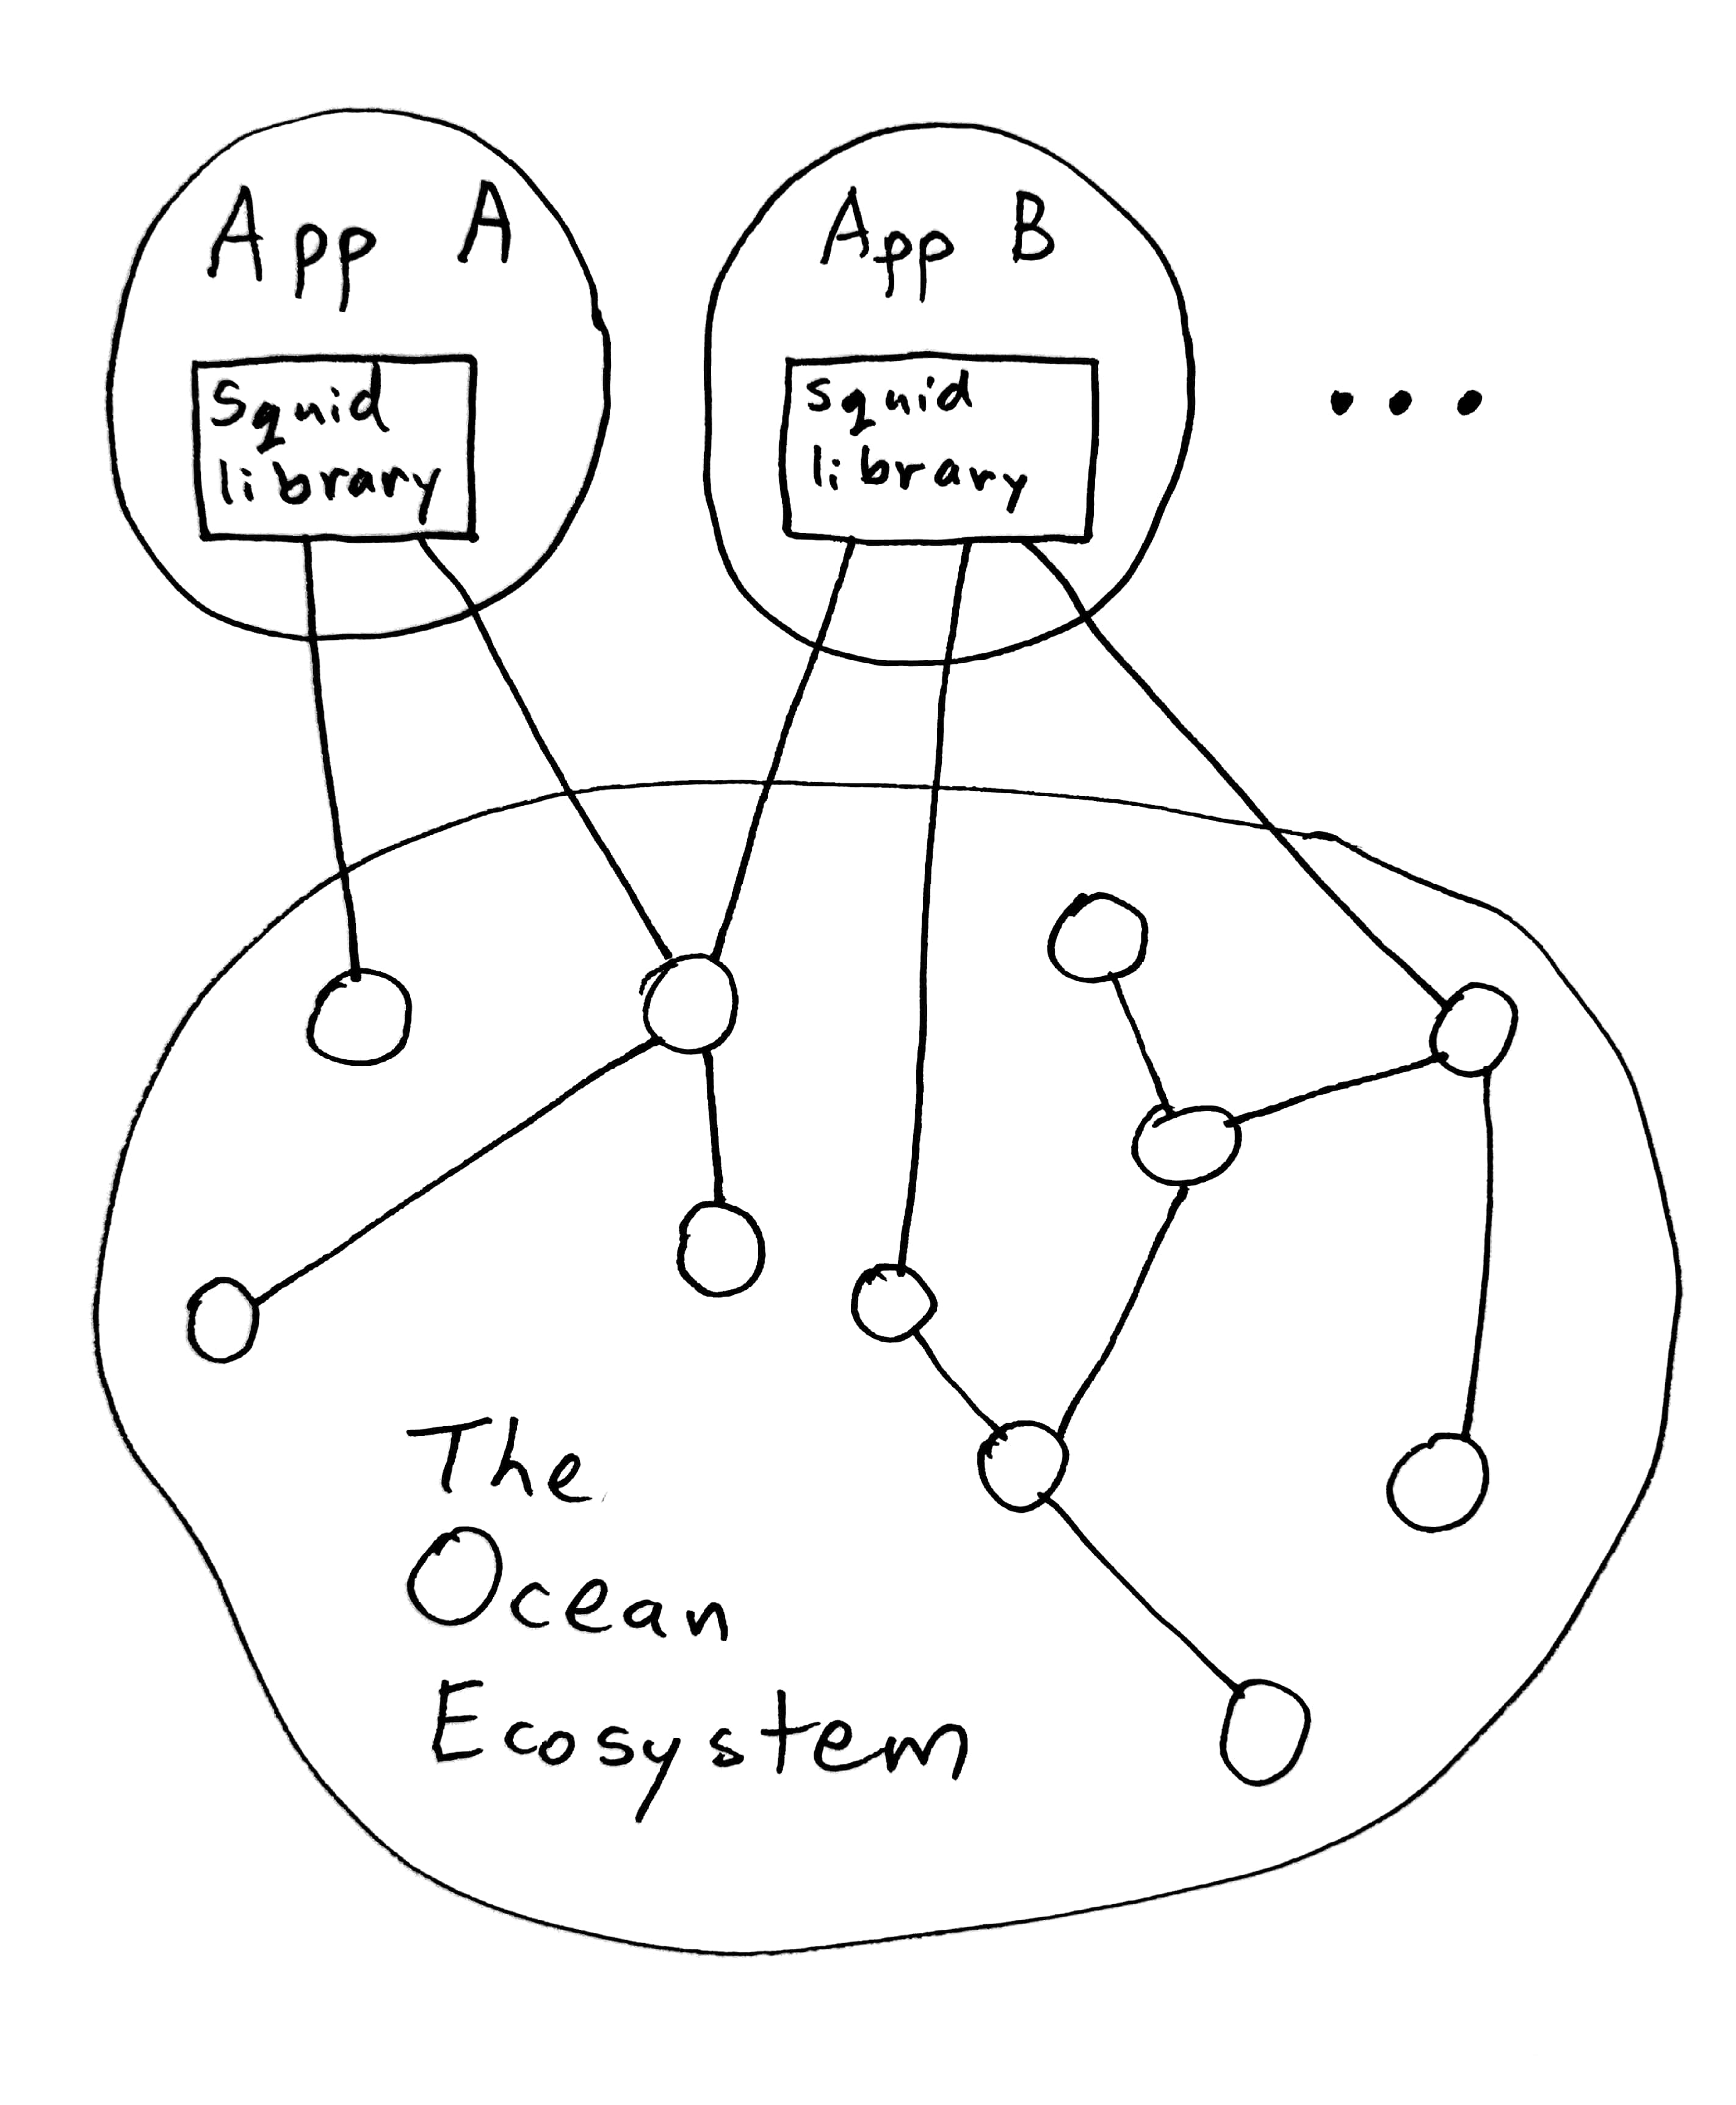 App A
Squid
library
App B
Squid
library
...
The
Ocean
Ecosystem